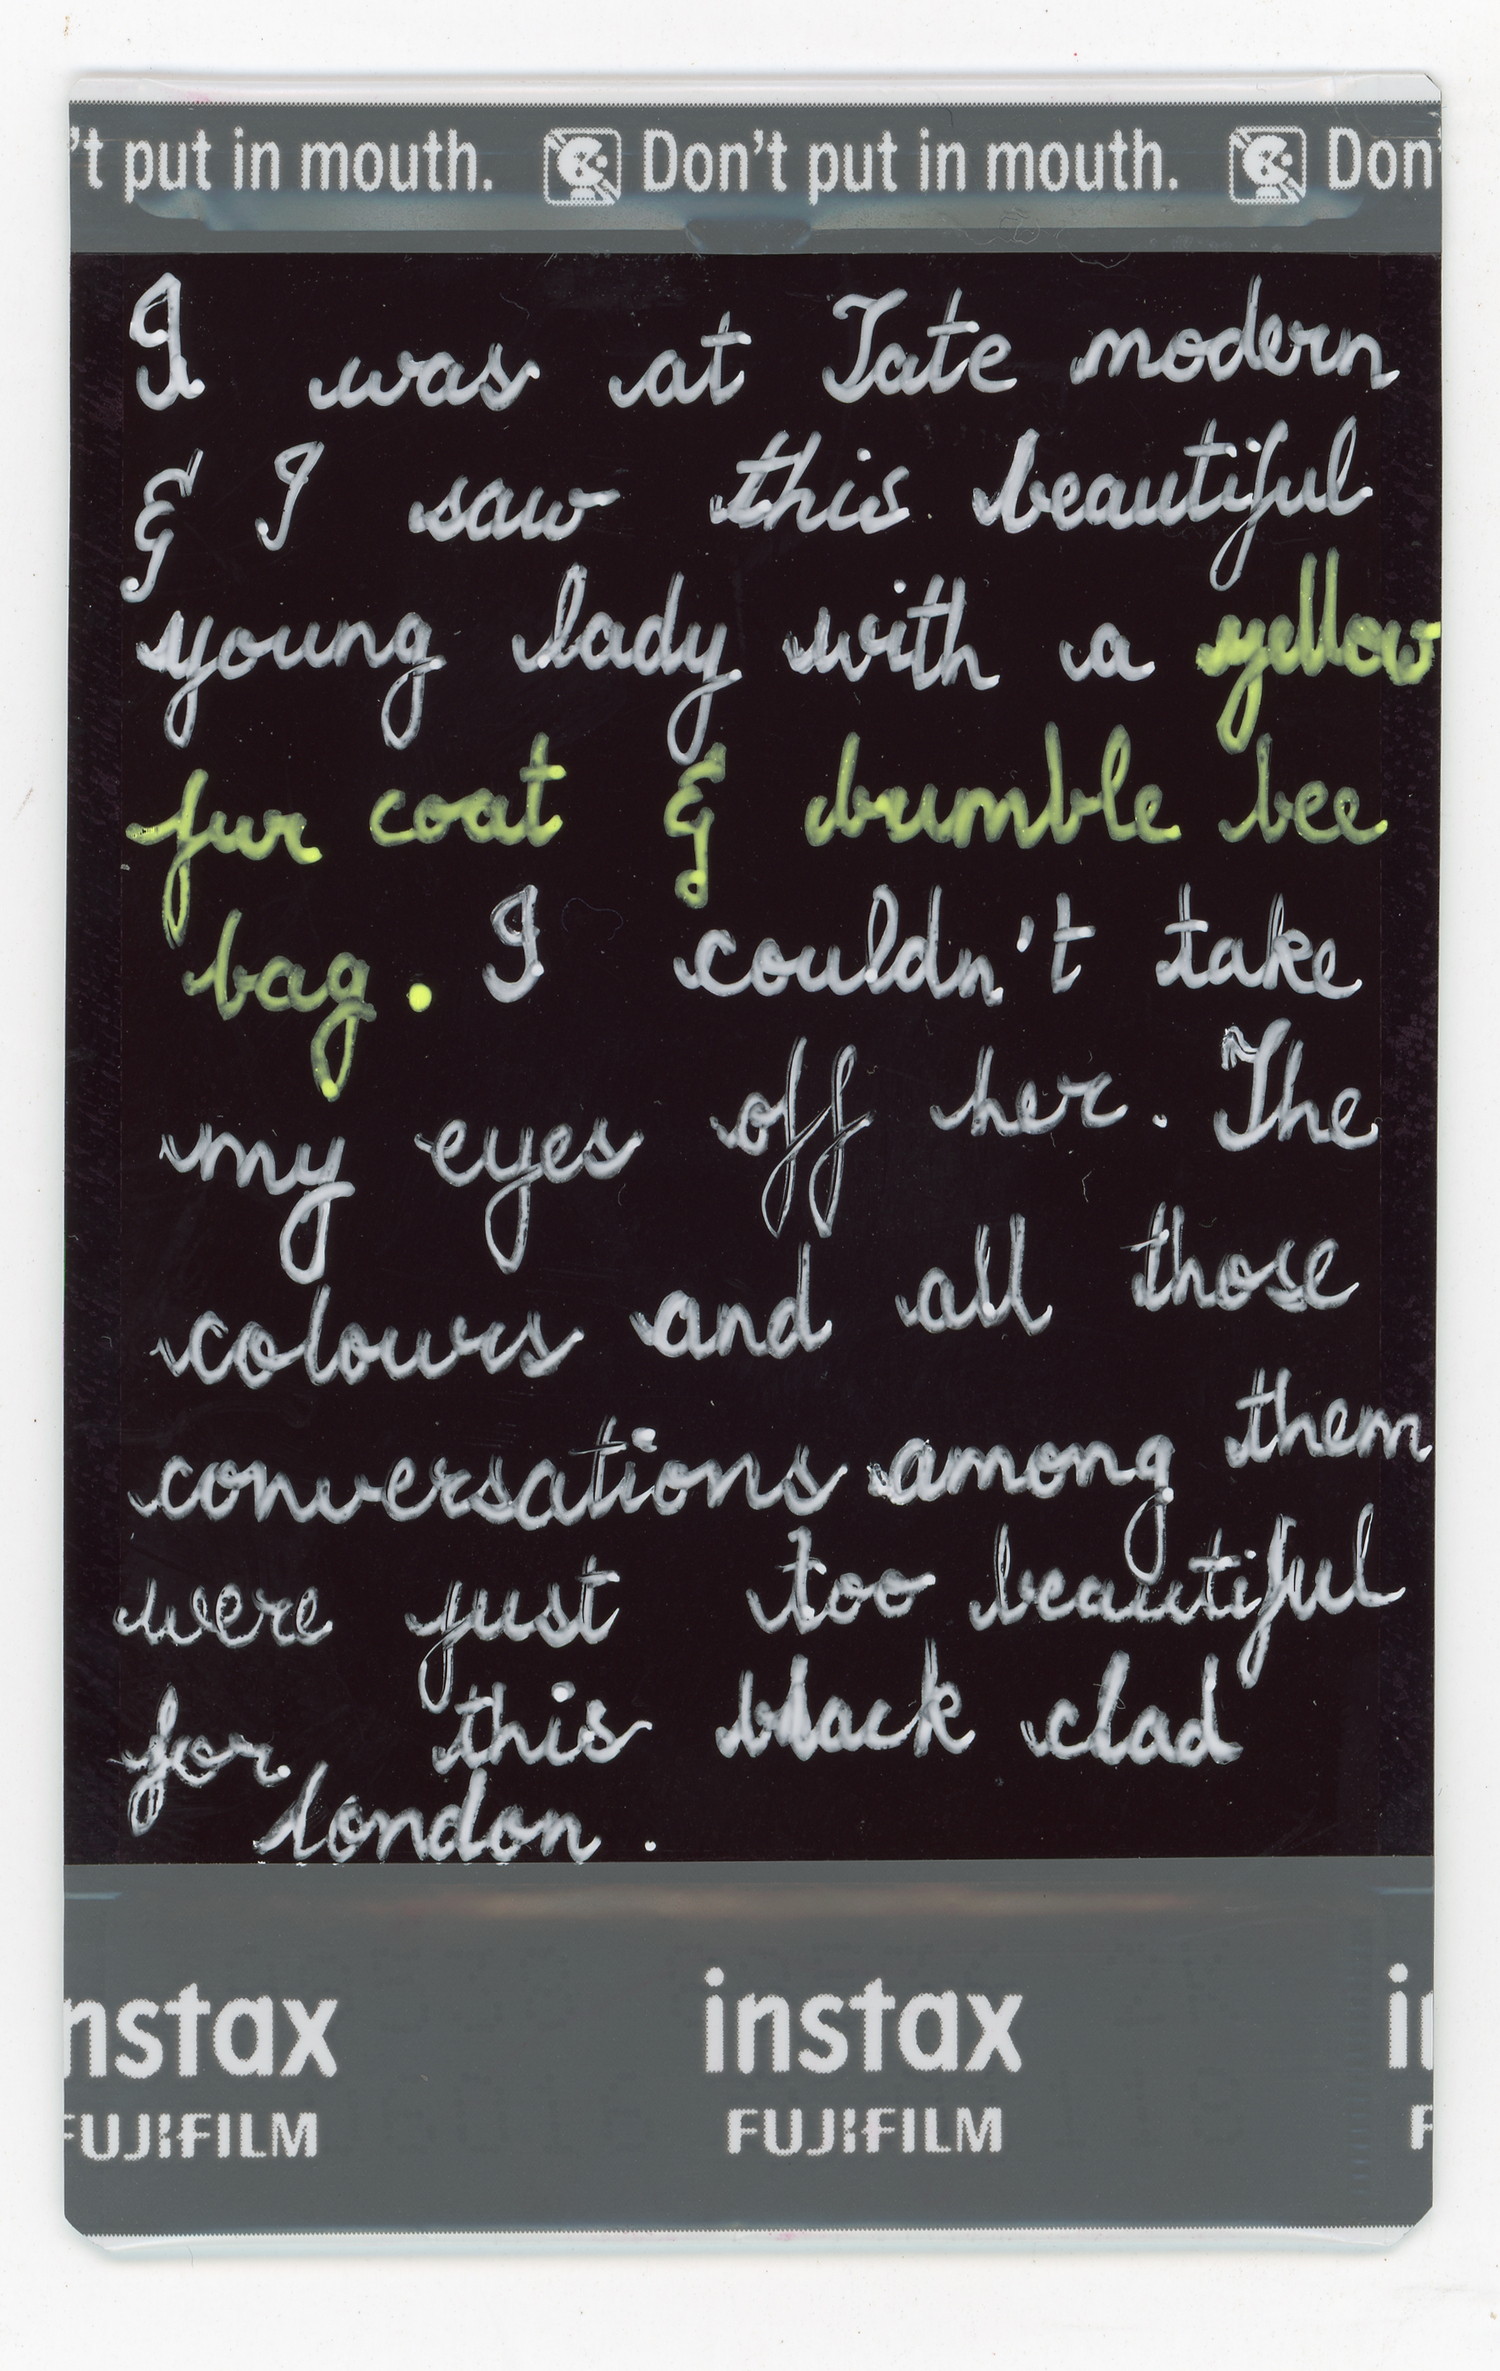 't put in mouth. Don't put in mouth. Don'
I was at Tate modern
& I saw this beautiful
young lady with a yellow
fur coat & bumble bee
bag. I couldn't take
my eyes off her. The
colours and all those
conversations among them
were just too beautiful
for this black clad
london.
nstax instax in
FUJIFILM FUJIFILM F